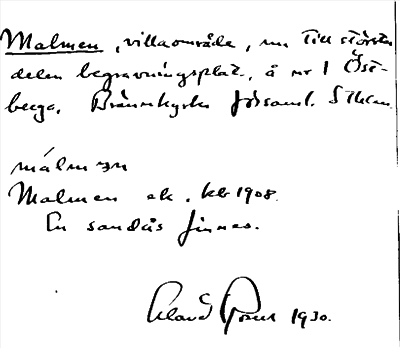 Malmen, villaområde, nu till största
delen begravningsplat., å nr 1 Öst-
berga, Brännkyrka församl. Sthlm.
målmen
Malmen ek. kb 1908.
En sandås finnes.
1930.